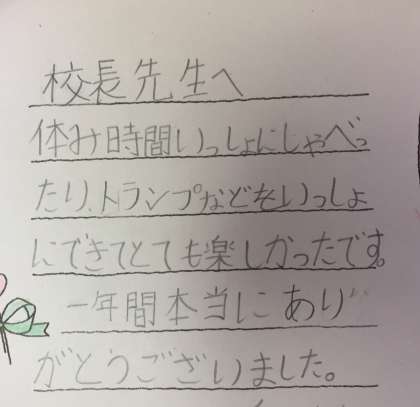 校長先生へ
休み時間いっしょにしゃべっ
たり、トランプなどをいっしょ
にできてとても楽しかったです。
一年間本当にあり
がとうございました。